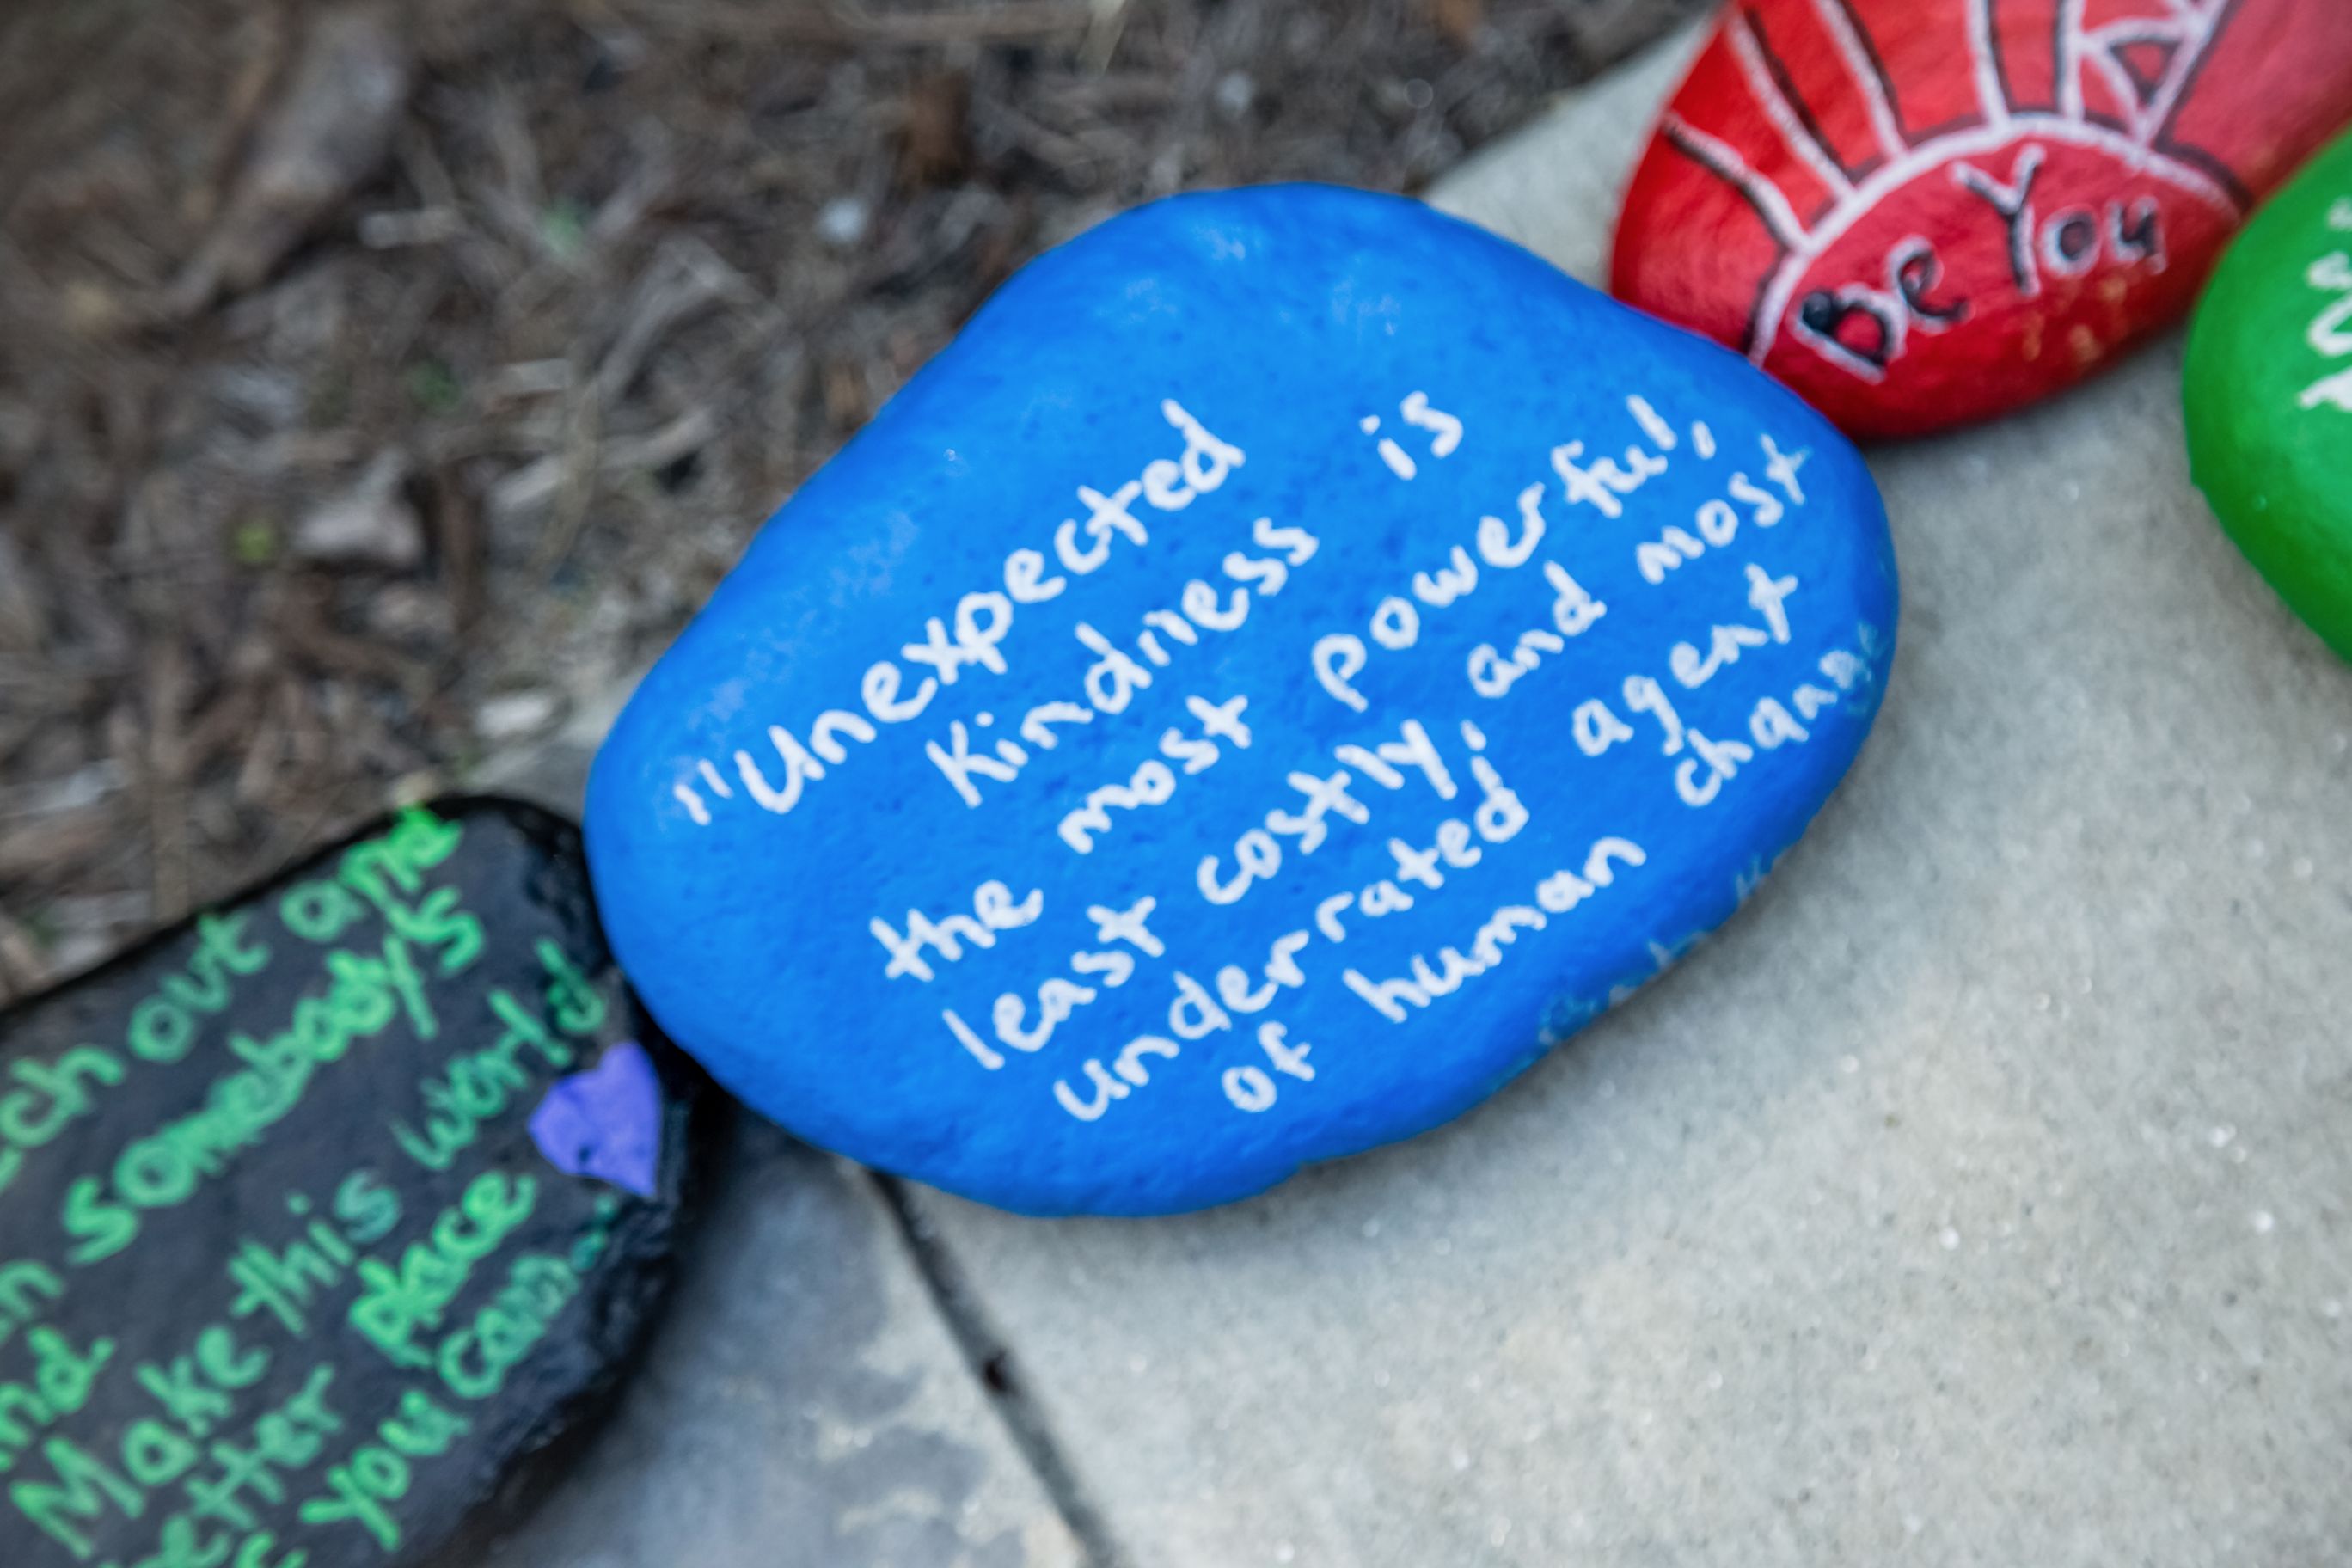 "Unexpected
Kindness is
the most powerful,
least costly, and most
underrated agent
of human change
Be You
out and
somebody's
Make this world
better place
you can...